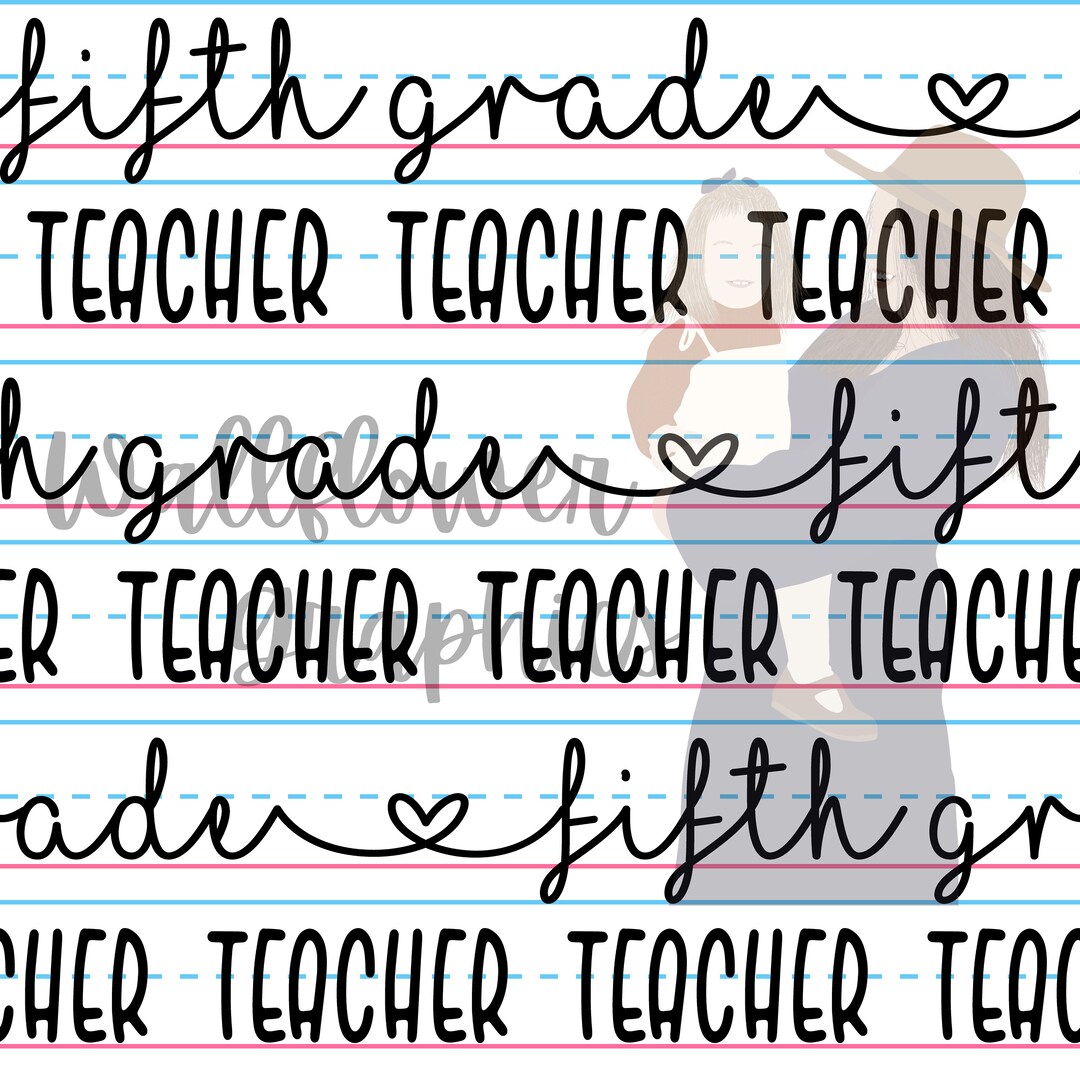 fifth grade
TEACHER TEACHER TEACHER
h grade fift
Wallflower
ER TEACHER TEACHER TEACHE
Graphics
ade fifth gr
CHER TEACHER TEACHER TEAC